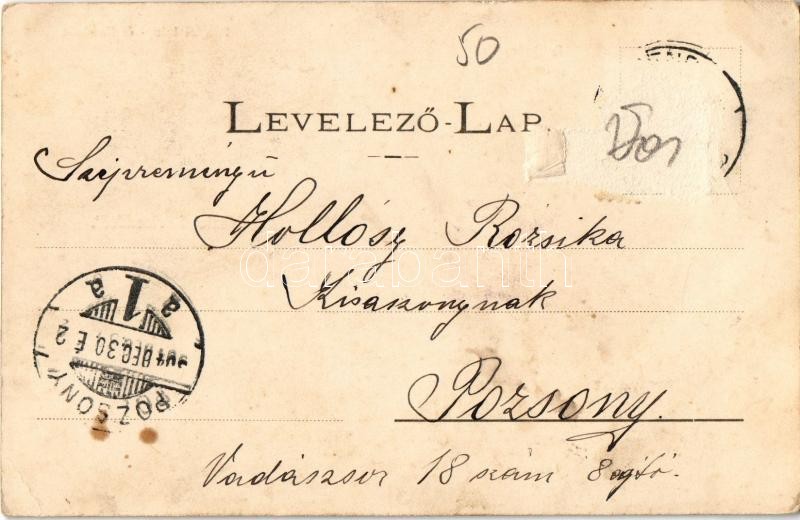 50
LEVELEZŐ-LAP.
Szépreményű
Hollósy Rozsika
Kisasszonynak
Pozsony.
Vadászsor 18 szám 8 ajtó.
POZSONY
904 DEC. 30. É 2
1
a a
darabanth